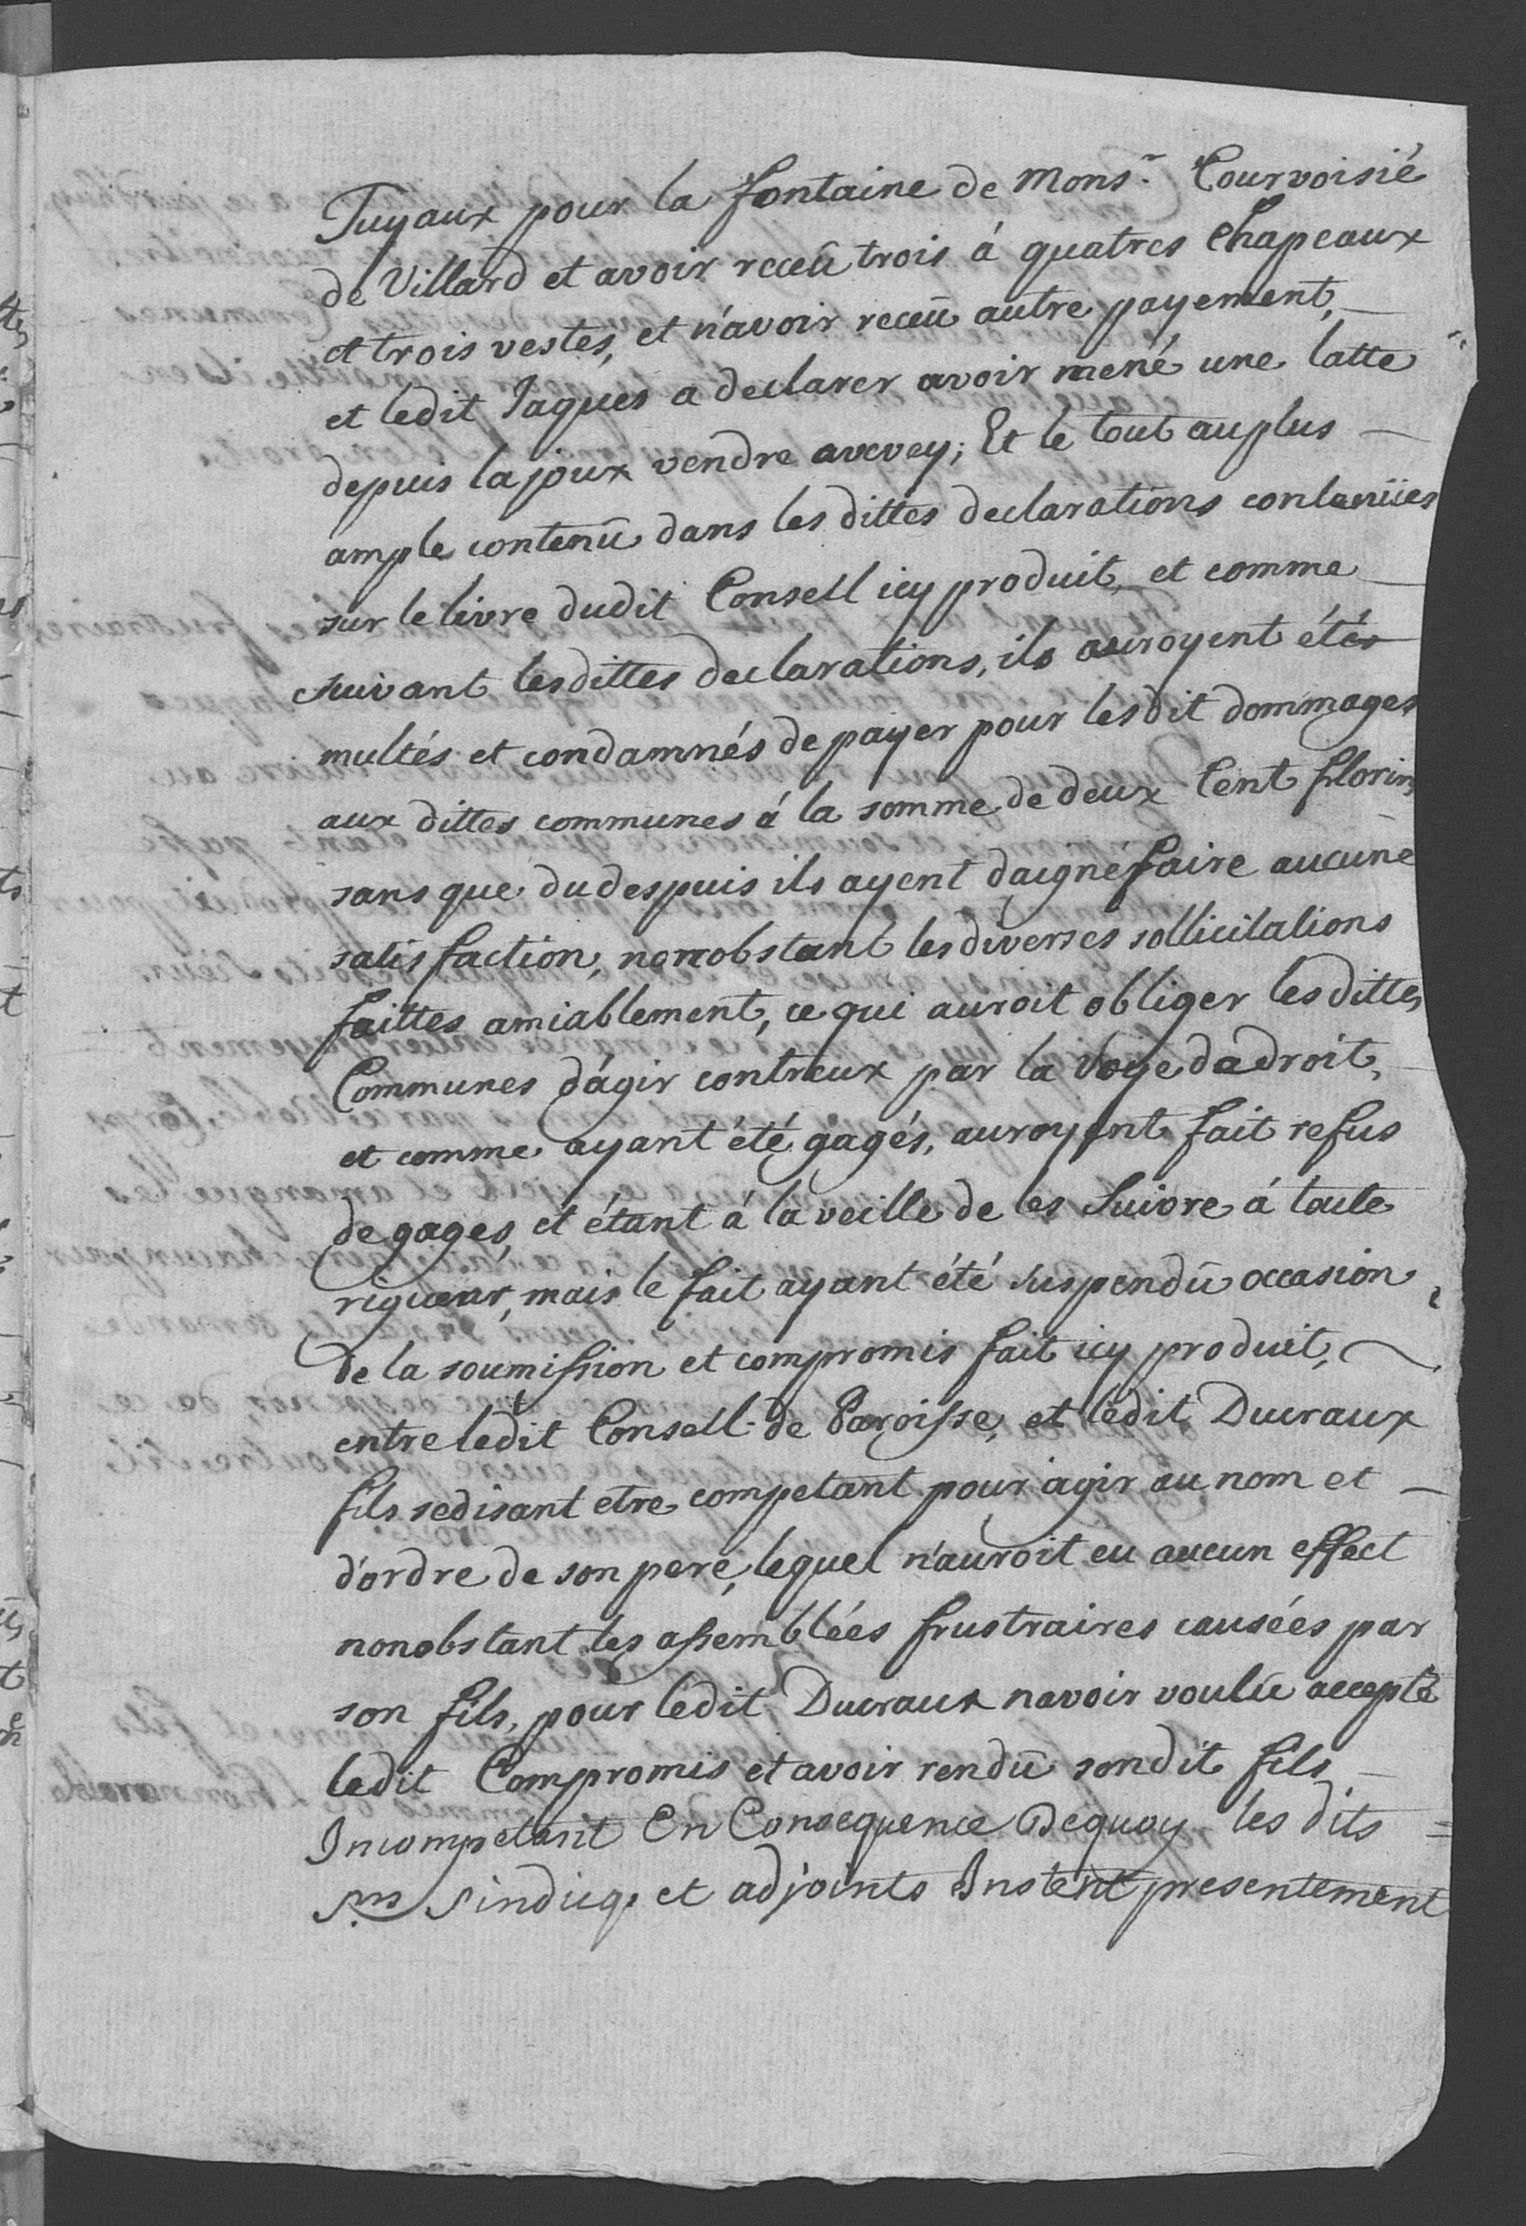 Tuyaux pour la fontaine de Mons.r Courvoisié
de Villard et avoir receû trois á quatres Chapeaux
et trois vestes, et n'avoir receû autre payement,
et ledit Jaques a declarer avoir mené une latte
depuis la joux vendre avevey; Et le tout au plus
ample contenû dans les dittes declarations contenües
sur le livre dudit Conseil icy produit, et comme
suivant lesdittes declarations, ils auroyent étés
multés et condamnés de payer pour lesdit dommages
aux dittes communes á la somme de deux Cent florins
sans que dudespuis ils ayent daigné faire aucune
satisfaction, nonobstant les diverses sollicitations
faittes amiablement, ce qui auroit obliger lesdittes
Communes d'agir contreux par la Voye de droit,
et comme ayant été gagés, auroyent fait refus
de gages, et étant á la veille de les suivre á toute
rigueur, mais le fait ayant été suspendû occasion
de la soumission et compromis fait icy produit,
entre ledit Conseil de Paroisse, et ledit Ducraux
fils sedisant etre competant pour agir au nom et
d'ordre de son pere, lequel n'auroit eu aucun effect
nonobstant les assemblées frustraires causées par
son fils, pour ledit Ducraux navoir voulû accepté
ledit Compromis et avoir rendû sondit fils
Incompetant En Consequence Dequoy les dits
Srs Sindicq. et adjoints Instent presentement